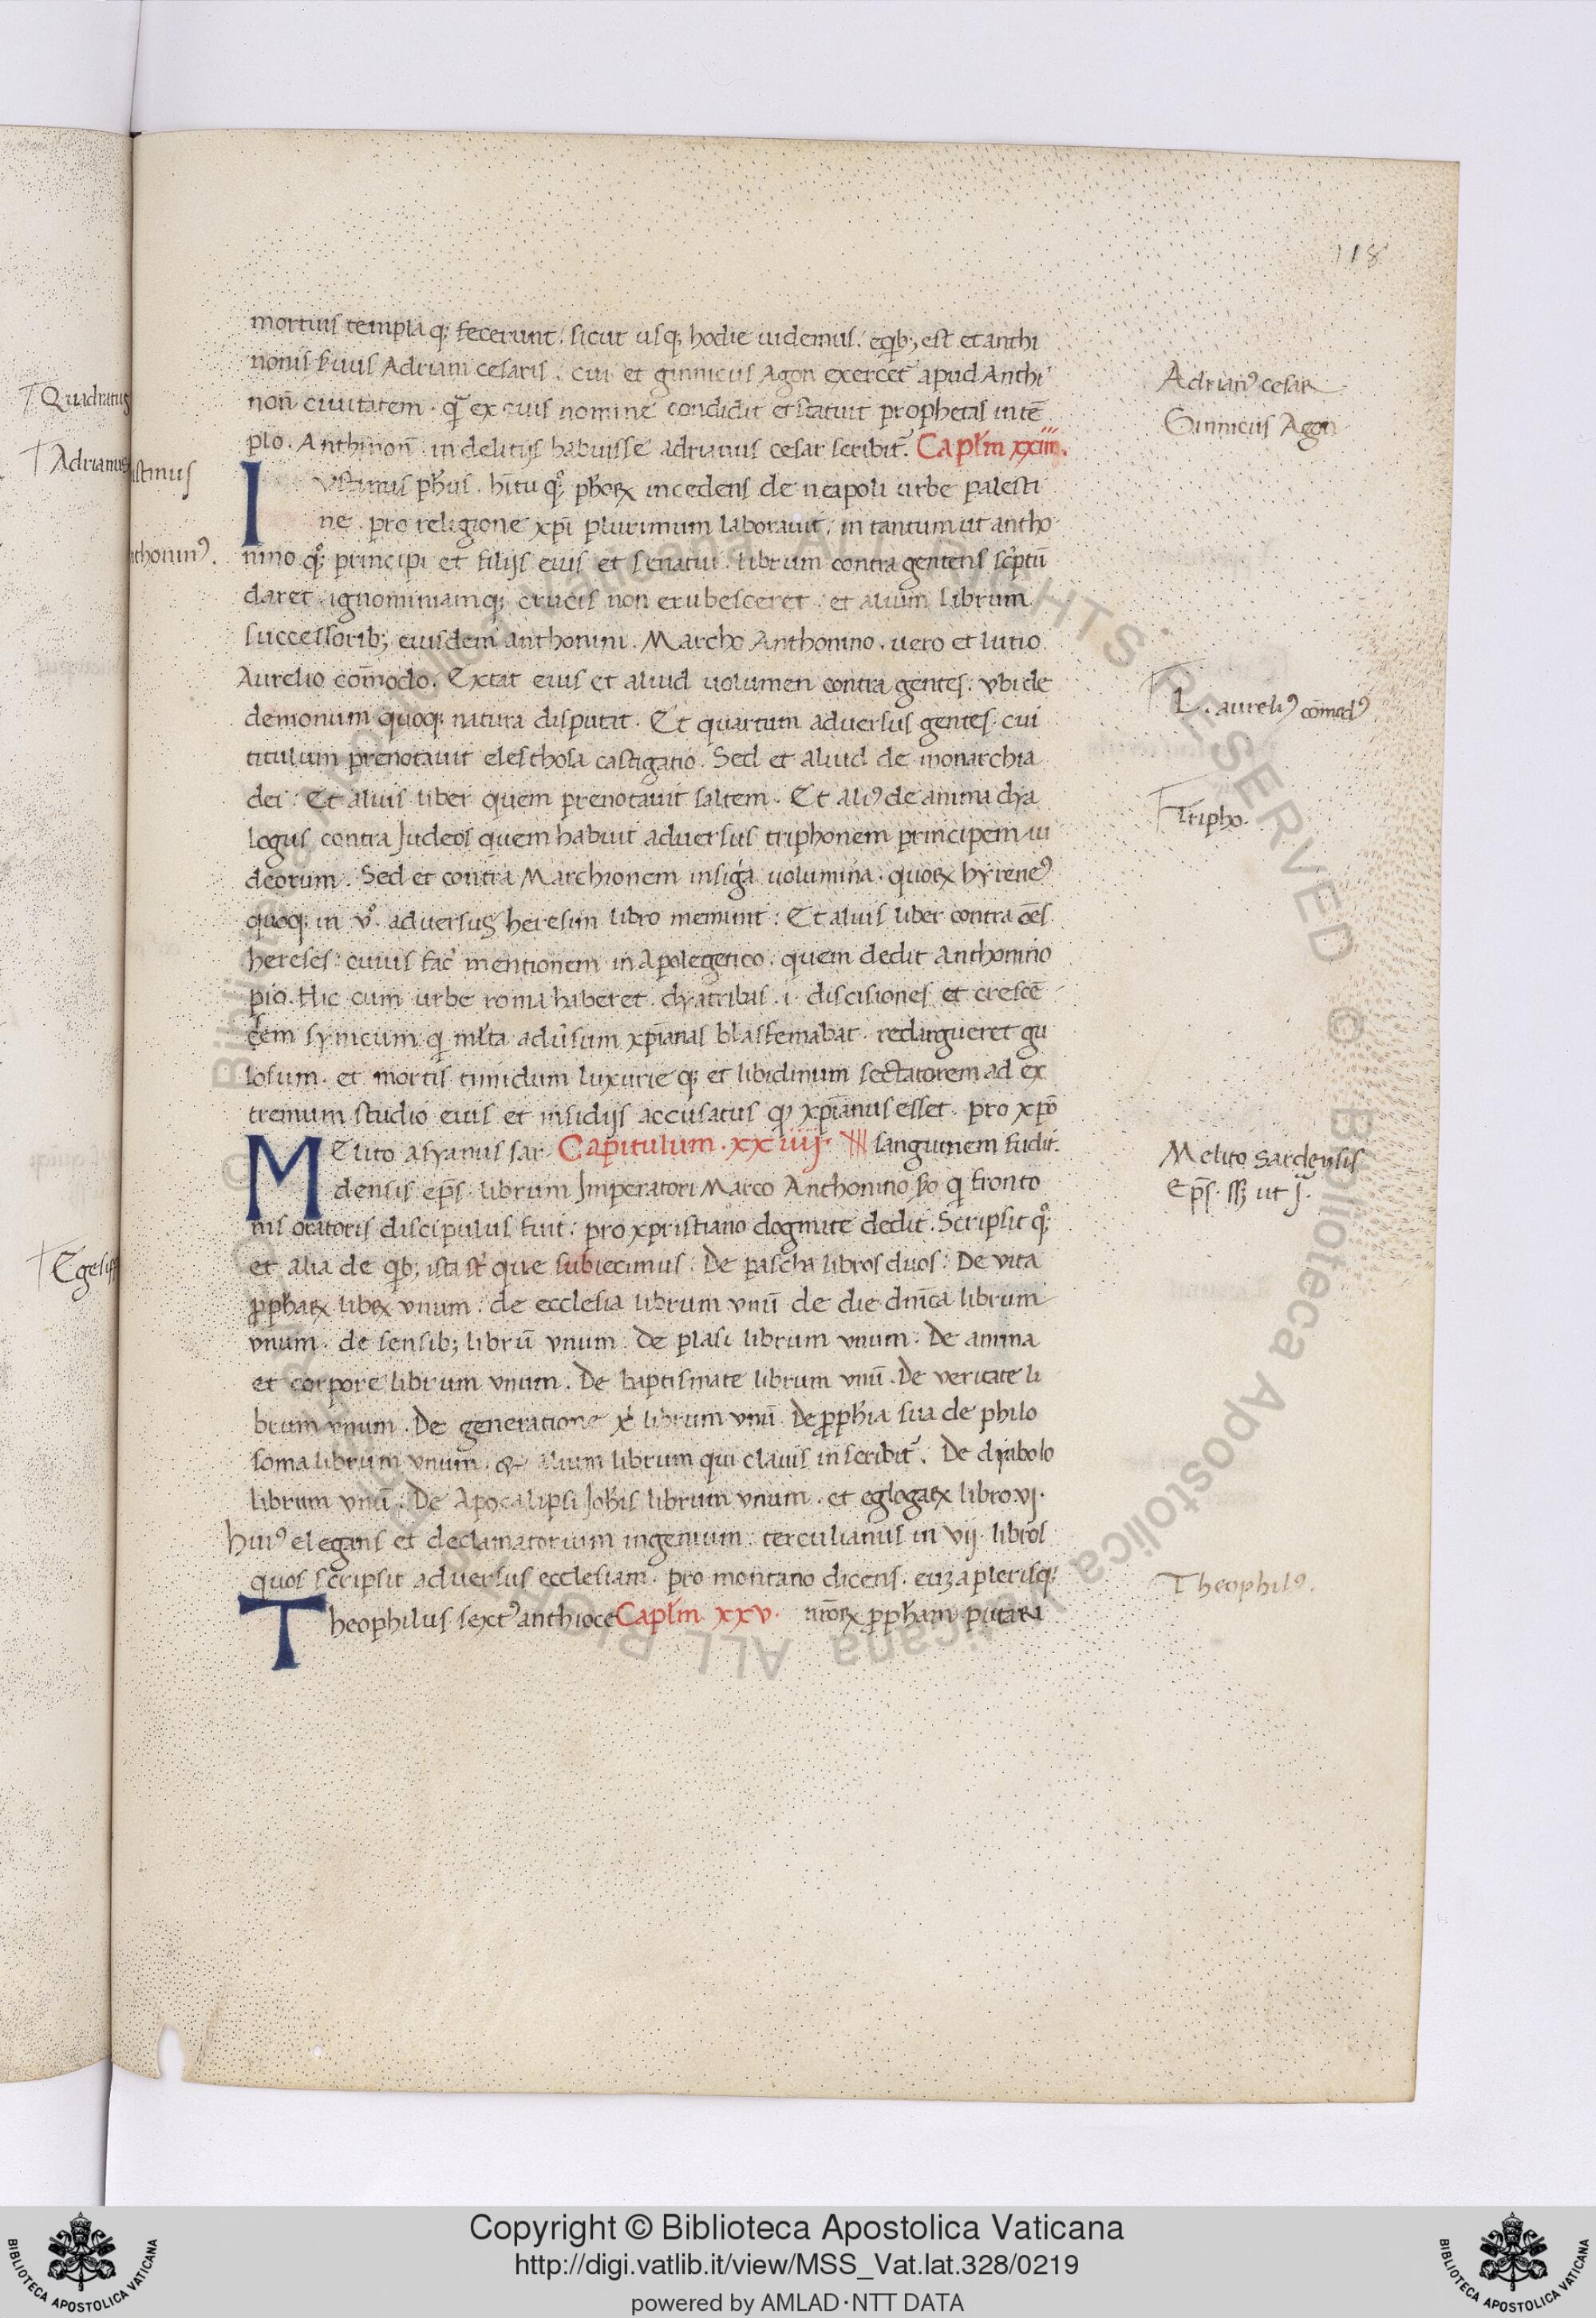 118
mortuis templa q; fecerunt. sicut usq; hodie uidemus. e qb; est et anthi
nonis seruus Adriani cesaris. cui et ginnicus Agon exercet apud Anthi
non ciuitatem. qā ex euis nomine condidit et statuit prophetas in tē
plo. Anthinon̄ in delitijs habuisse adrianus cesar scribit. Caplm xxiii.
Iustinus ph̄us. hītu qͦ; ph̄oꝝ incedens de neapoli urbe palesti
ne. pro religione xp̄i plurimum laborauit. in tantum ut antho
nino qͦ; principi et filijs eius et senatui. librum contra gentens scriptū
daret. ignominiamq; crucis non erubesceret. et alium librum
successorib; eiusdem anthonini. Marcho Anthonino. uero et lutio
Aurelio cōmodo. Extat eius et aliud uolumen contra gentes. vbi de
demonum quoq; natura disputat. Et quartum aduersus gentes. cui
titulum prenotauit elesthosa castigatio. Sed et aliud de monarchia
dei: Et alius liber quem prenotauit saltem. Et ali⁹ de anima dya
logus contra Judeos quem habuit aduersus triphonem principem iu
deorum. Sed et contra Marchionem insigā uolumina. quoꝝ hyrene⁹
quoq; in vͦ. aduersus heresim libro meminit: Et alius liber contra oēs
hereses: cuius fac̄ mentionem in Apolegetico. quem dedit Anthonino
pio. Hic cum urbe roma haberet. dyatribas. i. discisiones et crescē
tem synicum. q ml̄ta adūsum xp̄ianas blasfemabat. redargueret gu
losum. et mortis timidum luxurie q; et libidinum sectatorem ad ex
tremum studio eius et insidijs accusatus qͩ xp̄ianus esset. pro xp̄o
Melito asyanus sar Capitulum. xxiiij. sanguinem fudit.
densis ep̄s. librum Imperatori Marco Anthonino so q fronto
nis oratoris discipulus fuit: pro xpristiano dogmate dedit. Scripsit qͦ;
et alia de qb; ista st̄ que subiecimus: De pascha libros duos: De vita
ꝓph̄aꝝ libꝝ vnum. de ecclesia librum vnū de die dn̄ica librum
vnum. de sensib; librū vnum. De plasi librum vnum. De anima
et corpore librum vnum. De baptismate librum vnū. De veritate li
brum vnum. De generatione xi librum vnū. De ꝓph̄ia sua de philo
soma librum vnum. & alium librum qui clauis inscribit̄. De dyabolo
librum vnū. De Apocalipsi Joh̄is librum vnum. et eglogaꝝ libro. vj.
Hui⁹ elegans et declamatorium ingenium. terculianus in vij. libros
quos scripsit aduersus ecclesiam. pro montano dicens. euz a plerisq;
Theophilus sext⁹ anthioce Caplm. xxv. nr̄oꝝ ꝓph̄am putara
Adrian⁹ cesar
Ginnicus Agon
L. aureli⁹ cōmod⁹
Tripho.
Melito sardensis
Ep̄s.
Theophil⁹.
Quadratus
Adrianus
Egesip
stinus
thonin⁹.
Copyright © Biblioteca Apostolica Vaticana
http://digi.vatlib.it/view/MSS_Vat.lat.328/0219
powered by AMLAD·NTT DATA
BIBLIOTECA APOSTOLICA VATICANA
BIBLIOTECA APOSTOLICA VATICANA